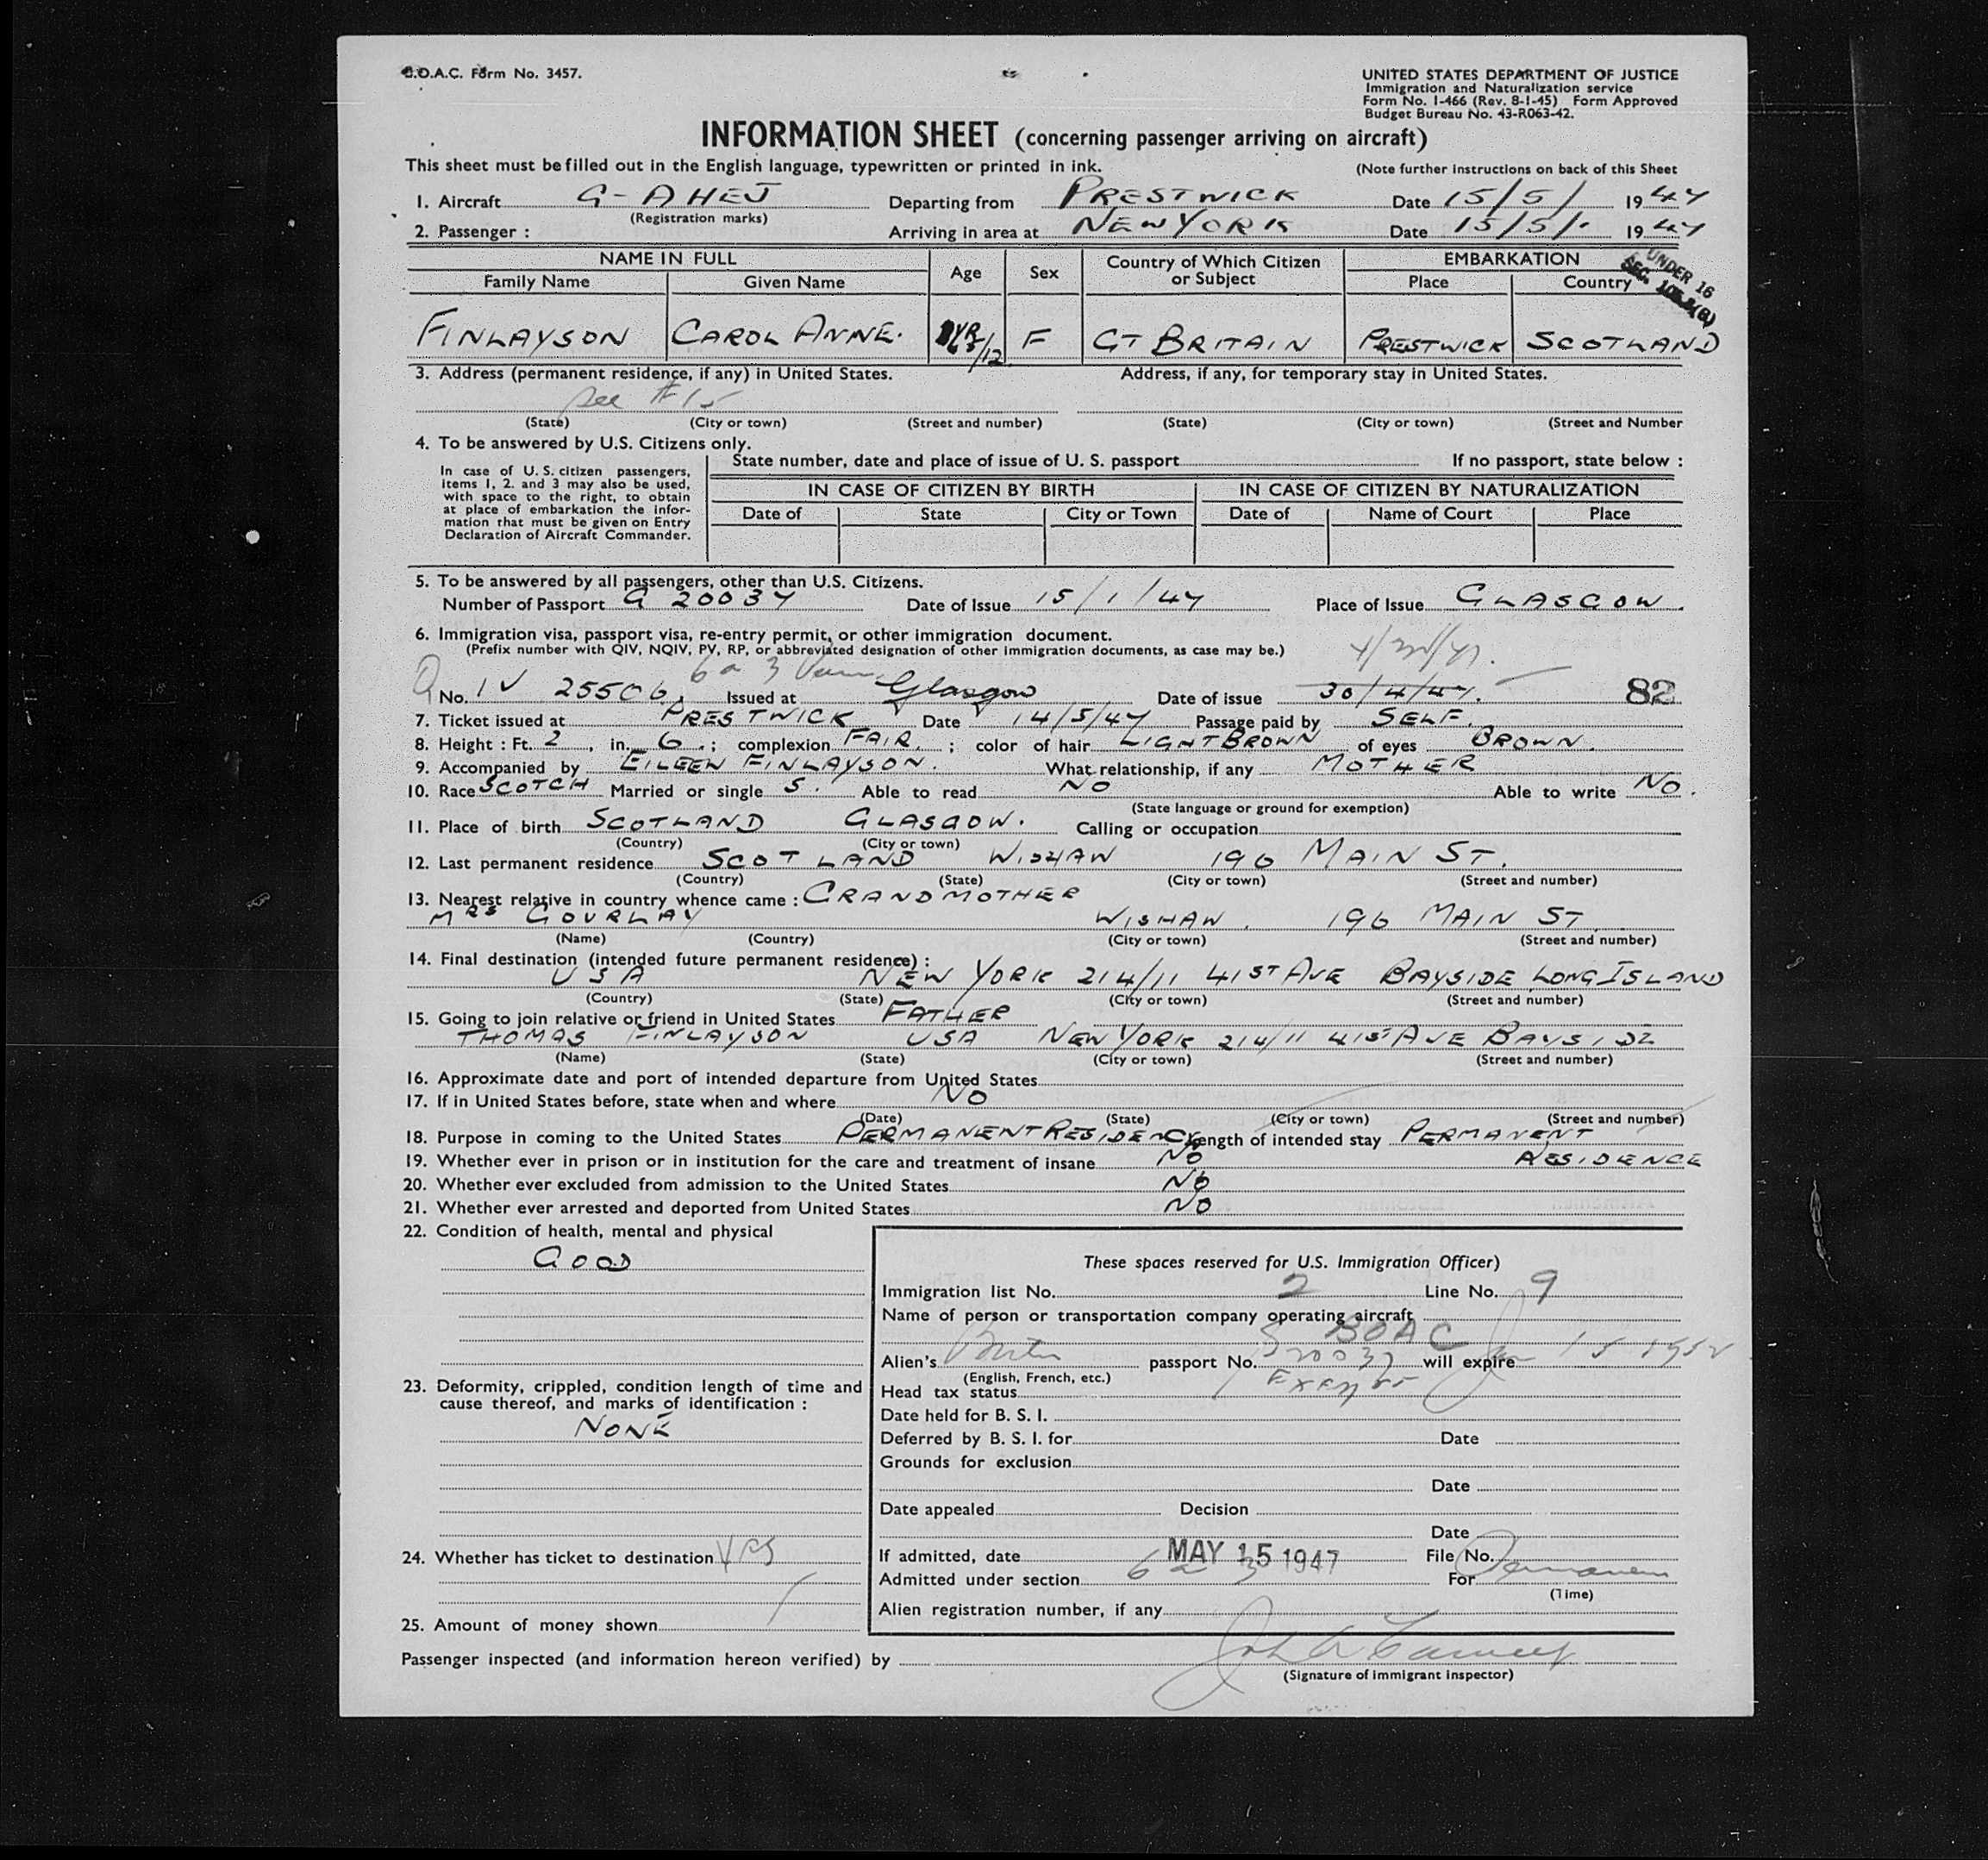 B.O.A.C. Form No. 3457.
UNITED STATES DEPARTMENT OF JUSTICE
Immigration and Naturalization service
Form No. I-466 (Rev. 8-1-45) Form Approved
Budget Bureau No. 43-R063-42.
INFORMATION SHEET (concerning passenger arriving on aircraft)
This sheet must be filled out in the English language, typewritten or printed in ink. (Note further instructions on back of this Sheet
1. Aircraft G-AHEJ Departing from PRESTWICK Date 15/5/ 1947
(Registration marks)
2. Passenger : Arriving in area at NEW YORK Date 15/5/. 1947
NAME IN FULL Age Sex Country of Which Citizen or Subject EMBARKATION
UNDER 16
Family Name Given Name Place Country
FINLAYSON CAROL ANNE. F GT BRITAIN PRESTWICK SCOTLAND
3. Address (permanent residence, if any) in United States. Address, if any, for temporary stay in United States.
See #15
(State) (City or town) (Street and number) (State) (City or town) (Street and Number
4. To be answered by U.S. Citizens only.
State number, date and place of issue of U. S. passport If no passport, state below :
In case of U. S. citizen passengers,
items 1, 2. and 3 may also be used,
with space to the right, to obtain
at place of embarkation the infor-
mation that must be given on Entry
Declaration of Aircraft Commander.
IN CASE OF CITIZEN BY BIRTH IN CASE OF CITIZEN BY NATURALIZATION
Date of State City or Town Date of Name of Court Place
5. To be answered by all passengers, other than U.S. Citizens.
Number of Passport G 20037 Date of Issue 15/1/47 Place of Issue GLASGOW.
6. Immigration visa, passport visa, re-entry permit, or other immigration document.
(Prefix number with QIV, NQIV, PV, RP, or abbreviated designation of other immigration documents, as case may be.)
Q No. IV 25506, Issued at Glasgow Date of issue 30/4/47. 82
7. Ticket issued at PRESTWICK Date 14/5/47 Passage paid by SELF.
8. Height : Ft. 2 , in. 6 . ; complexion FAIR. ; color of hair LIGHT BROWN of eyes BROWN.
9. Accompanied by EILEEN FINLAYSON. What relationship, if any MOTHER
10. Race SCOTCH Married or single S. Able to read NO Able to write NO.
(State language or ground for exemption)
11. Place of birth SCOTLAND GLASGOW. Calling or occupation
(Country) (City or town)
12. Last permanent residence SCOTLAND WISHAW 196 MAIN ST.
(Country) (State) (City or town) (Street and number)
13. Nearest relative in country whence came : GRANDMOTHER
MRS GOURLAY WISHAW. 196 MAIN ST.
(Name) (Country) (City or town) (Street and number)
14. Final destination (intended future permanent residence) :
USA NEW YORK 214/11 41ST AVE BAYSIDE LONG ISLAND
(Country) (State) (City or town) (Street and number)
15. Going to join relative or friend in United States FATHER
THOMAS FINLAYSON USA NEW YORK 214/11 41ST AVE BAYSIDE
(Name) (State) (City or town) (Street and number)
16. Approximate date and port of intended departure from United States
17. If in United States before, state when and where NO
(Date) (State) (City or town) (Street and number)
18. Purpose in coming to the United States PERMANENT RESIDENCY Length of intended stay PERMANENT
19. Whether ever in prison or in institution for the care and treatment of insane NO RESIDENCE
20. Whether ever excluded from admission to the United States NO
21. Whether ever arrested and deported from United States NO
22. Condition of health, mental and physical
GOOD
23. Deformity, crippled, condition length of time and
cause thereof, and marks of identification :
NONE
24. Whether has ticket to destination YES
25. Amount of money shown
These spaces reserved for U.S. Immigration Officer)
Immigration list No. 2 Line No. 9
Name of person or transportation company operating aircraft
BOAC
Alien's passport No. 20037 will expire Jan 15 1952
(English, French, etc.)
Head tax status Exempt
Date held for B. S. I.
Deferred by B. S. I. for Date
Grounds for exclusion
Date
Date appealed Decision
Date
If admitted, date MAY 15 1947 File No.
Admitted under section 6 a 3 For Permanent
(Time)
Alien registration number, if any
Passenger inspected (and information hereon verified) by
(Signature of immigrant inspector)